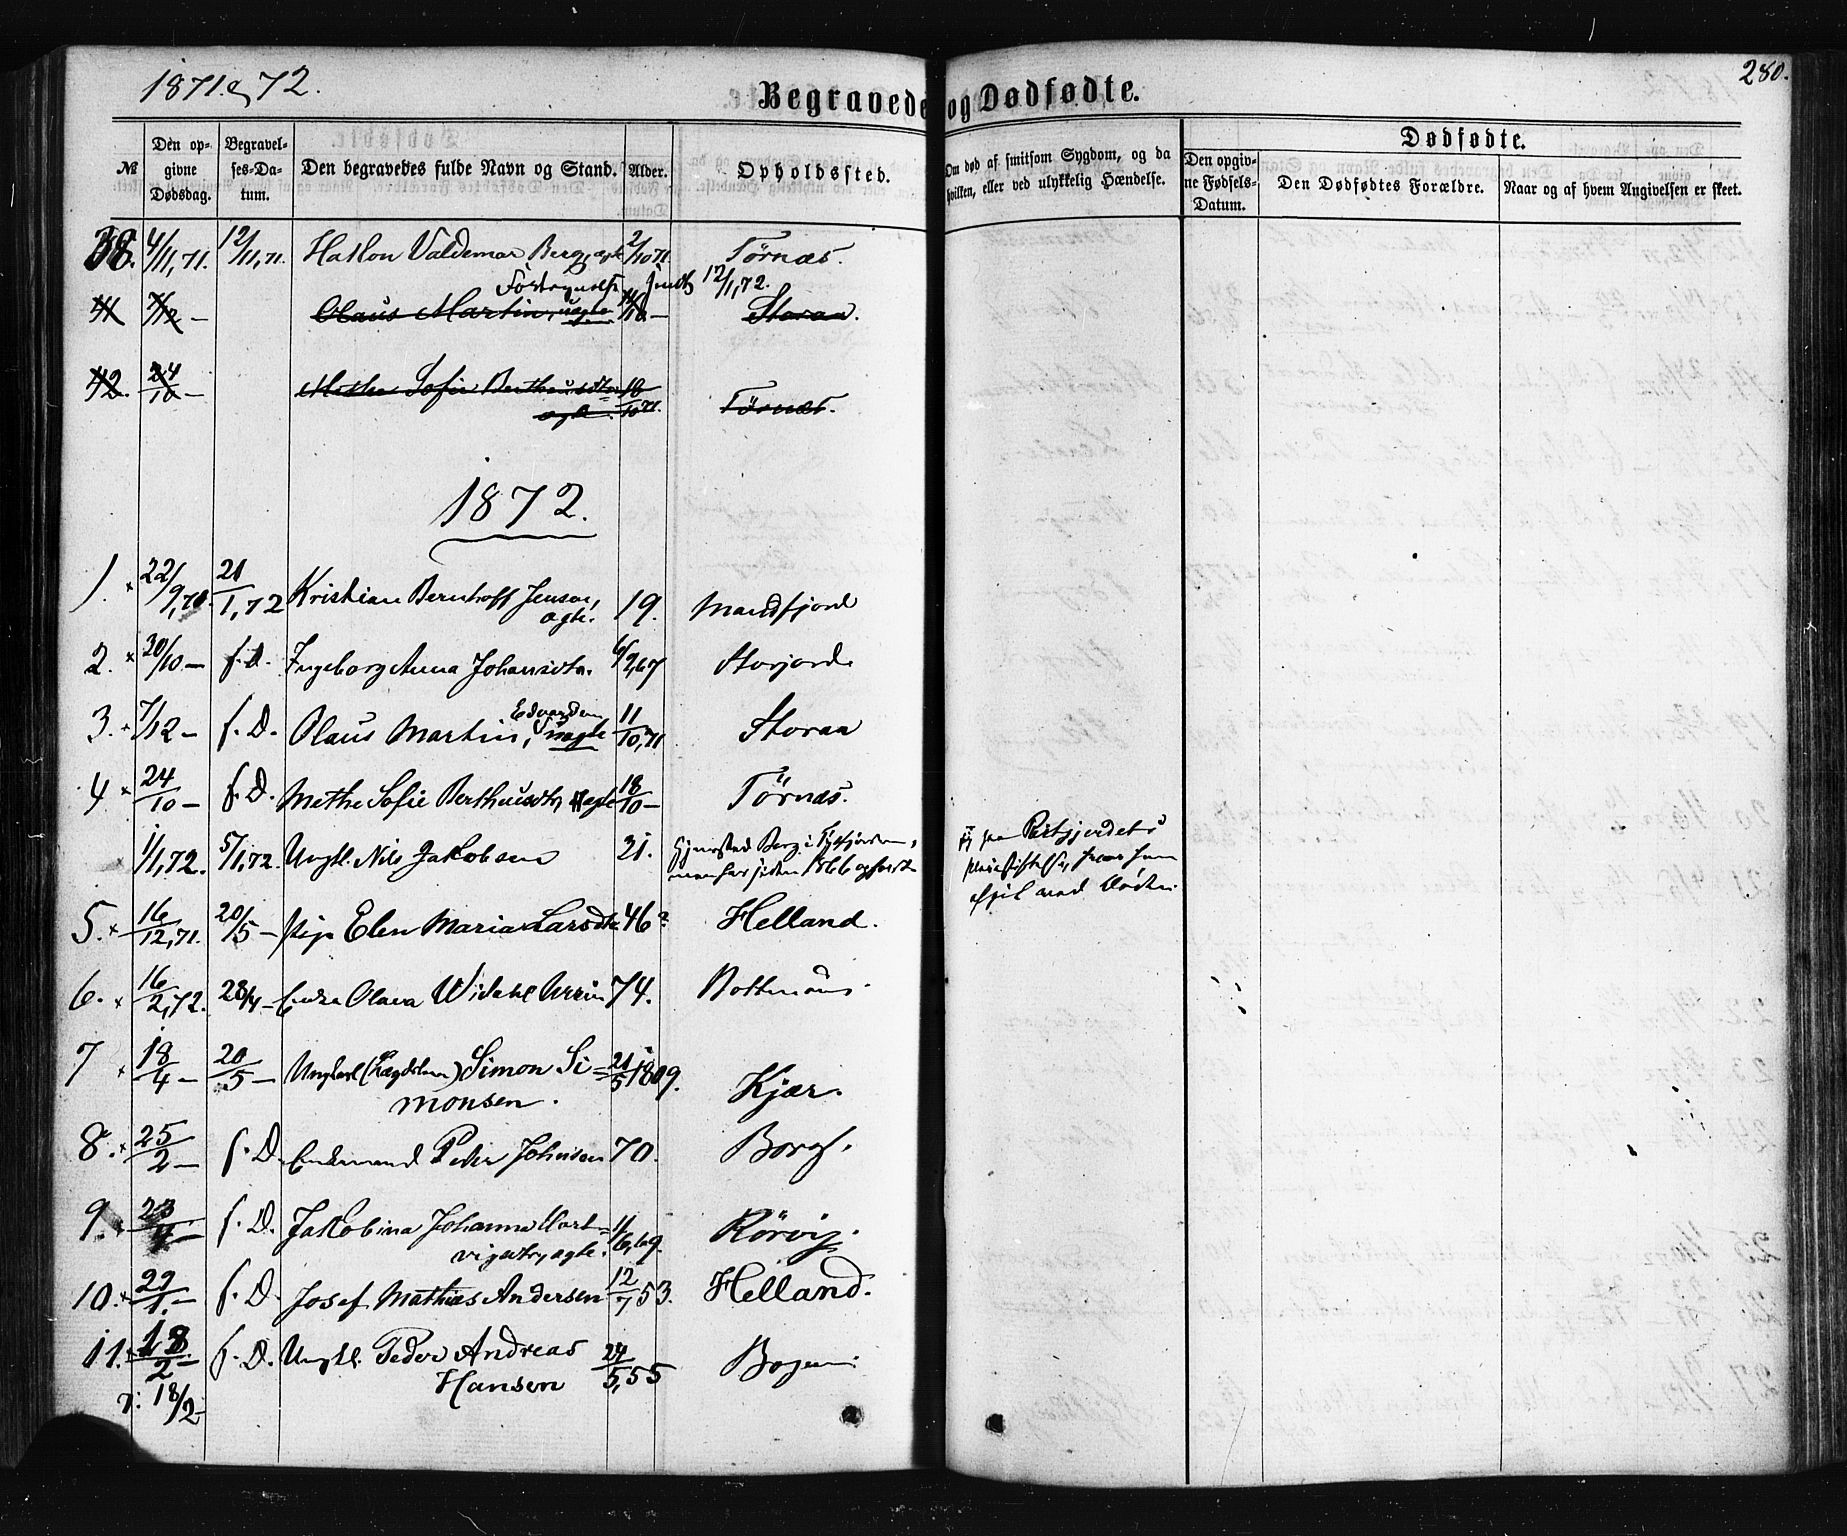 1871 & 72.
280.
Begravede og Dødfødte.
№
Den opgivne Dødsdag.
Begravelses-Datum.
Den begravedes fulde Navn og Stand.
Alder.
Opholdssted.
Om død af smitsom Sygdom, og da hvilken, eller ved ulykkelig Hændelse.
Dødfødte.
Den opgivne Fødsels-Datum.
Den Dødfødtes Forældre.
Naar og af hvem Angivelsen er skeet.
38. 4/11,71. 12/11,71. Hakon Valdemar Berg, ægte 2/10 71 Tørnæs.
12/1,72.
41 7/12 - Olaus Martin, uægte 11/10 - Storaa.
42. 24/10 - Methe Sofie Bertheusdtr 18/10 71. Tørnæs.
ægte.
1872.
1. × 22/9,71. 21/1,72 Kristian Bernhoff Jensen, 19. Mandfjord
ægte.
2. × 20/10 - f. D. Ingeborg Anna Johansdtr. 6/2,67 Storjord
3. × 7/12 - f. D. Olaus Martin, Edvardsen uægte 11/10,71 Storaa
4 × 24/10 - f. D. Methe Sofie Bertheusdtr, ægte 18/10 - Tørnæs.
× 1/1,72. 5/1,72. Ungkl. Nils Jakobsen 21. Hjemsted Berg i Tysfjorden,
men har siden 1866
5. × 16/12,71. 20/5 - Pige Elen Maria Larsdtr 46? Helland.
6. × 16/2,72. 28/4 - Enke Olava Widahl 74. Botten
7 × 18/4 - 20/5 - Ungkarl (Lægdslem) Simon Si= 21/5 1809. Kjær.
monsen.
8. × 25/2 - f. D. Enkemand Peder Johnsen 70. Borg.
9. × 23/4 - f. D. Jakobina Johanna Hart= 11/6,69. Rørvig.
vigsdtr, ægte.
10. × 29/1. - f. D. Josef Mathias Andersen 12/7 53. Helland.
11. × 18/2 - f. D. Ungkl. Peder Andreas 24/5,55 Bogen
Hansen
ɔ: 18/2